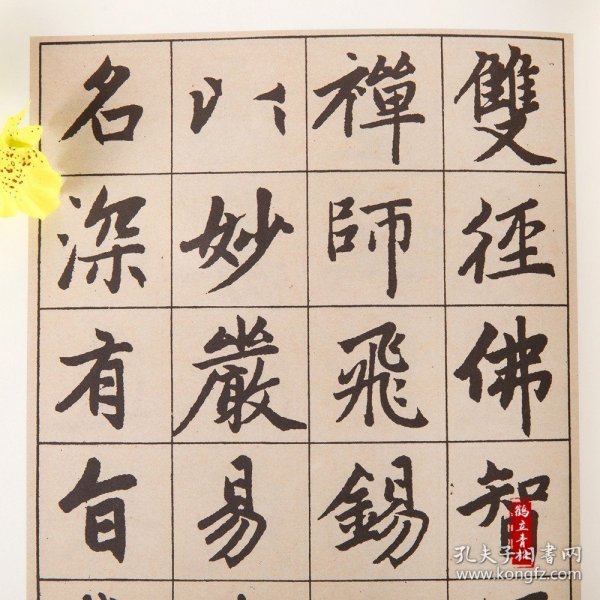 雙徑佛智
禪師飛錫
以妙嚴易
名深有旨
鹤立青
孔夫子旧书网
www.kongfz.com